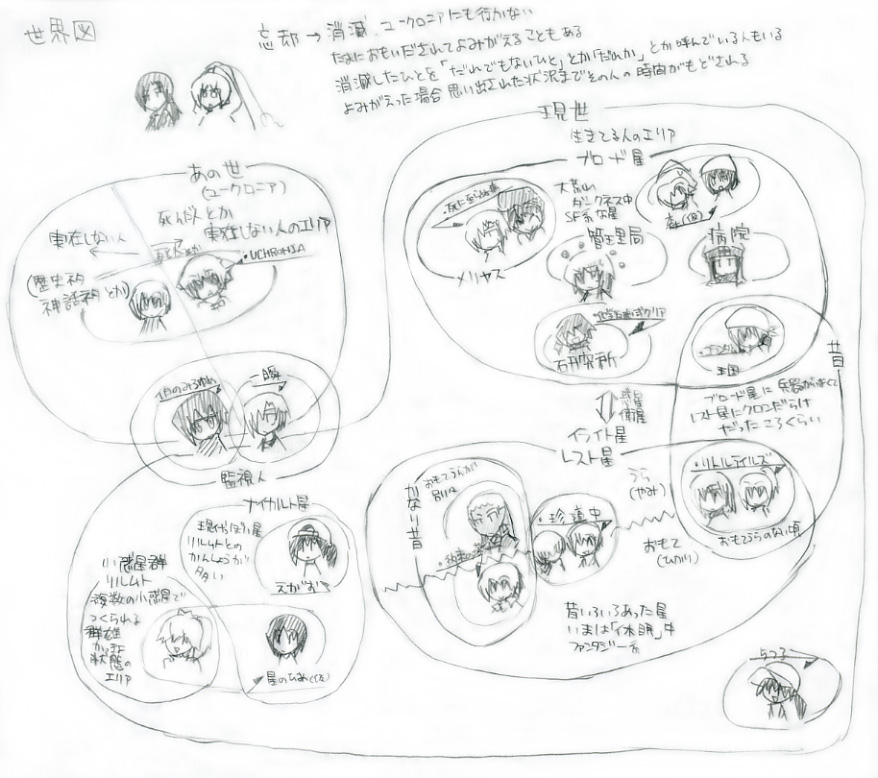 世界図
忘却→消滅、ユークロニアにも行かない
たまにおもいだされてよみがえることもある
消滅したひとを「だれでもないひと」とか「だれか」とか呼んでいる人もいる
よみがえった場合思い出された状況までその人の時間がもどされる
現世
生きてる人のエリア
ブロード星
あの世
(ユークロニア)
死んだ人とか
実在しない人のエリア
実在しない人
(歴史的
神話的とか)
・UCHRONIA
メリヤス
大荒山
ダークネス中
SF系な星
管理局
病院
研究所
王国
昔
ブロード星に兵器が
レスト星にクロンだらけ
だったころくらい
惑星
衛星
インイト星
レスト星
一瞬
監視人
ナイカルト星
現代っぽい星
リルムトとの
かんしょうが
多い
えがお
小惑星群
リルムト
複数の小惑星で
つくられる
群雄
かっきょ
状態の
エリア
星のひめ(仮)
かなり昔
おもてうらが
・珍道中
うら
(やみ)
おもて
(ひかり)
・リトルテイルズ
おもてうらのない頃
昔いろいろあった星
いまは「休眠」中
ファンタジー系